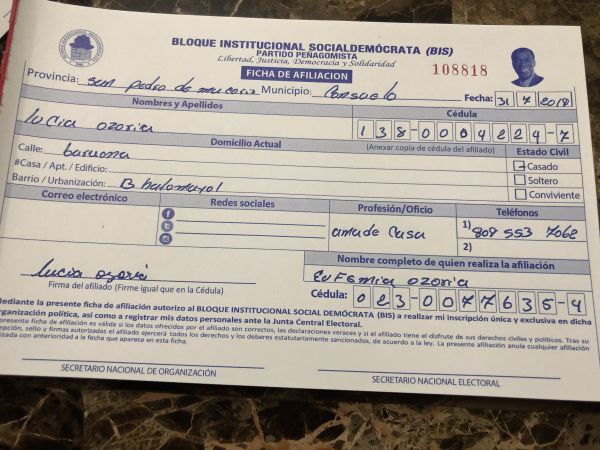 BLOQUE INSTITUCIONAL SOCIALDEMÓCRATA (BIS)
PARTIDO PEÑAGOMISTA
Libertad, Justicia, Democracia y Solidaridad
FICHA DE AFILIACION
108818
Provincia: sem pedro de macoris Municipio: Consuelo Fecha: 31 7 2018
Nombres y Apellidos Cédula
lucia ozoria 138-0004224-7
Domicilio Actual (Anexar copia de cédula del afiliado) Estado Civil
Calle: barrona Casado
#Casa / Apt. / Edificio: Soltero
Barrio / Urbanización: B halomayol Conviviente
Correo electrónico Redes sociales Profesión/Oficio Teléfonos
ama de Casa 1) 809 553 7062
2)
lucia ozoria
Nombre completo de quien realiza la afiliación
Eufemia ozoria
Firma del afiliado (Firme igual que en la Cédula) Cédula: 023-0077635-4
Mediante la presente ficha de afiliación autorizo al BLOQUE INSTITUCIONAL SOCIAL DEMÓCRATA (BIS) a realizar mi inscripción única y exclusiva en dicha
organización política, así como a registrar mis datos personales ante la Junta Central Electoral.
presente ficha de afiliación es válida si los datos ofrecidos por el afiliado son correctos, las declaraciones veraces y si el afiliado tiene el disfrute de sus derechos civiles y políticos. Tras su
epción, sello y firmas autorizadas el afiliado ejercerá todos los derechos y los deberes estatutariamente sancionados, de acuerdo a la ley. La presente afiliación anula cualquier afiliación
izada con anterioridad a la fecha que aparece en esta ficha.
SECRETARIO NACIONAL DE ORGANIZACIÓN SECRETARIO NACIONAL ELECTORAL